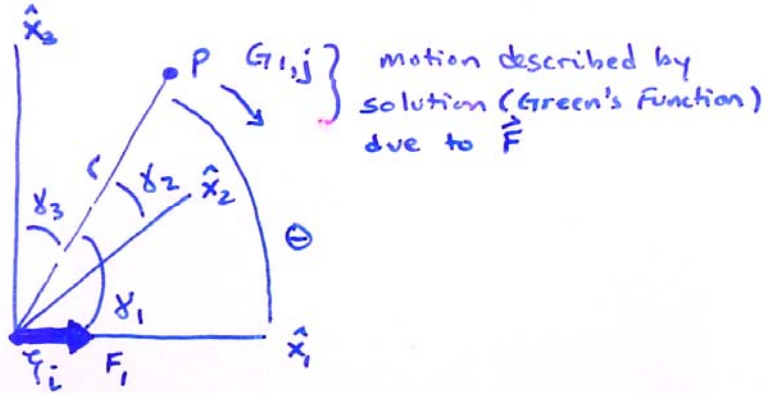 x̂₃
P G₁,j } motion described by
solution (Green's Function)
due to F⃗
r
γ₃ γ₂ x̂₂
Θ
γ₁
ξᵢ F₁ x̂₁